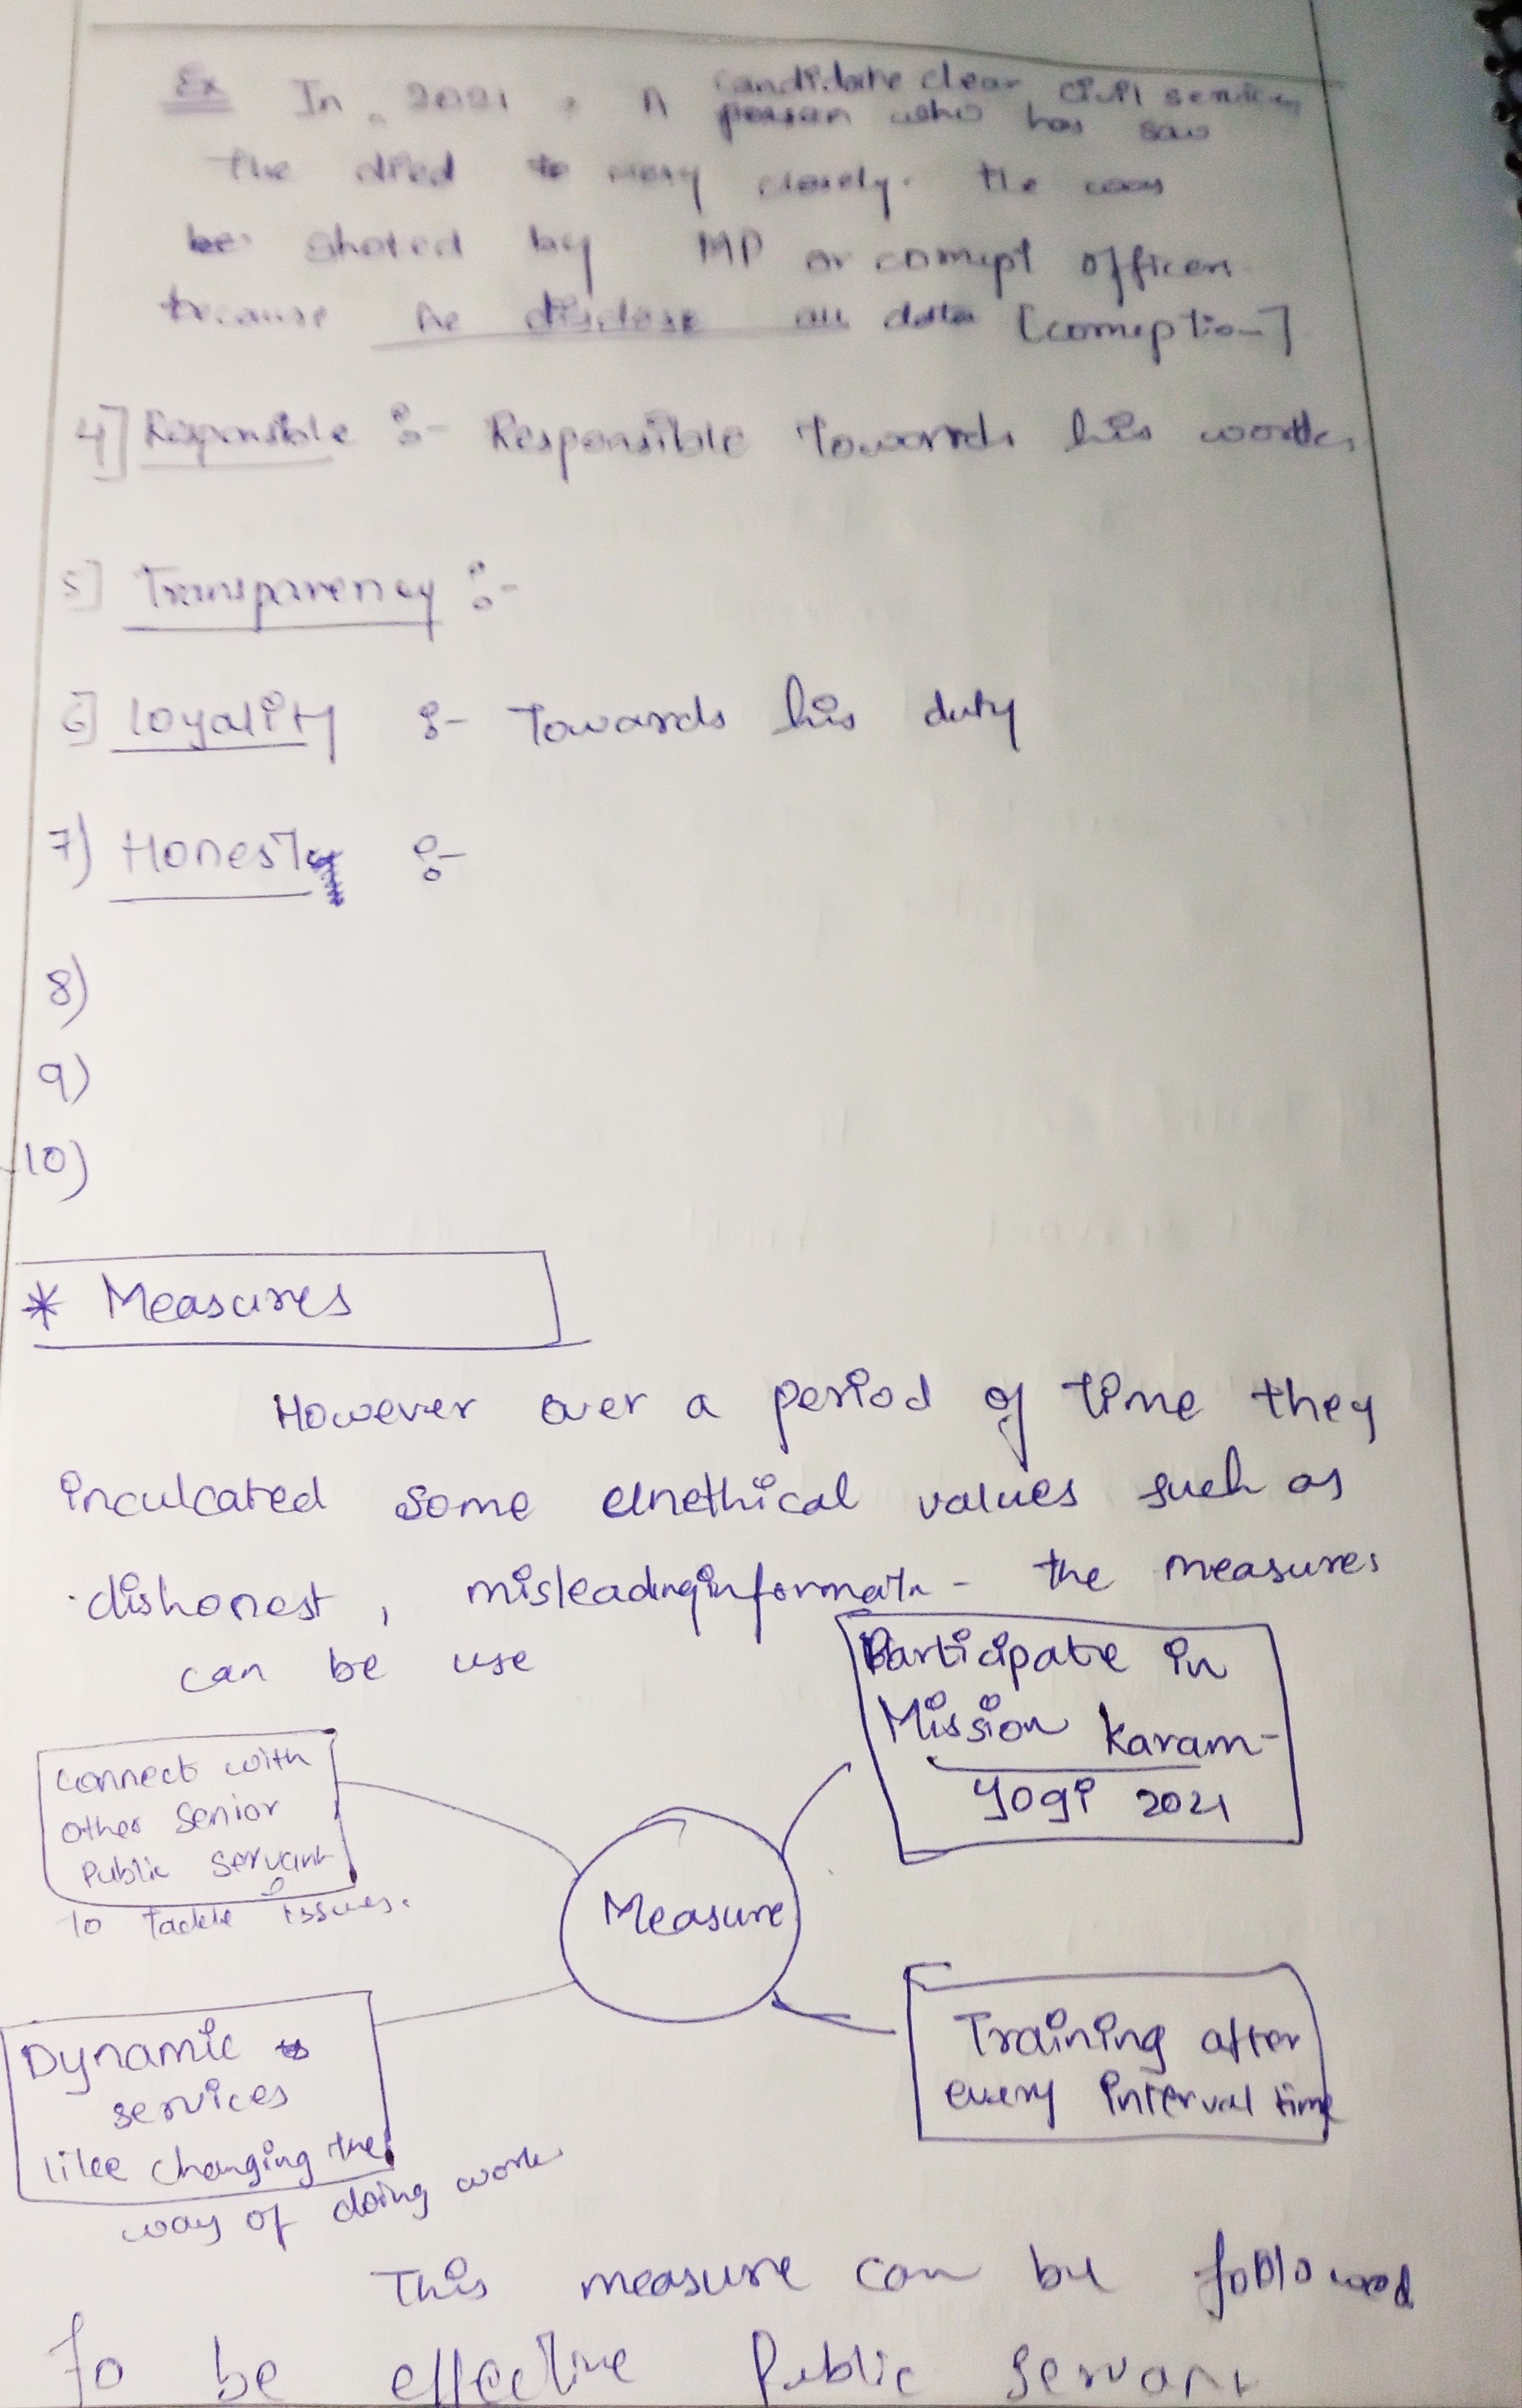 Ex In 2021, A candidate clear civil services
person who has saw
the died to very closely. the was
be shoted by MP or corrupt officers
because he disclose all data [corruption]
4] Responsible :- Responsible Towards his works
5] Transparency :-
6] Loyality :- Towards his duty
7) Honesty :-
8)
9)
10)
* Measures
However over a period of time they
inculcated some unethical values such as
dishonest, misleading informatn - the measures
can be use
Participate in
Mission Karam-
yogi 2021
Connect with
other Senior
Public Servant
To Tackle issues.
Measure
Training after
every interval time
Dynamic
services
like changing the
way of doing work
This measure can be followed
To be effective Public Servant